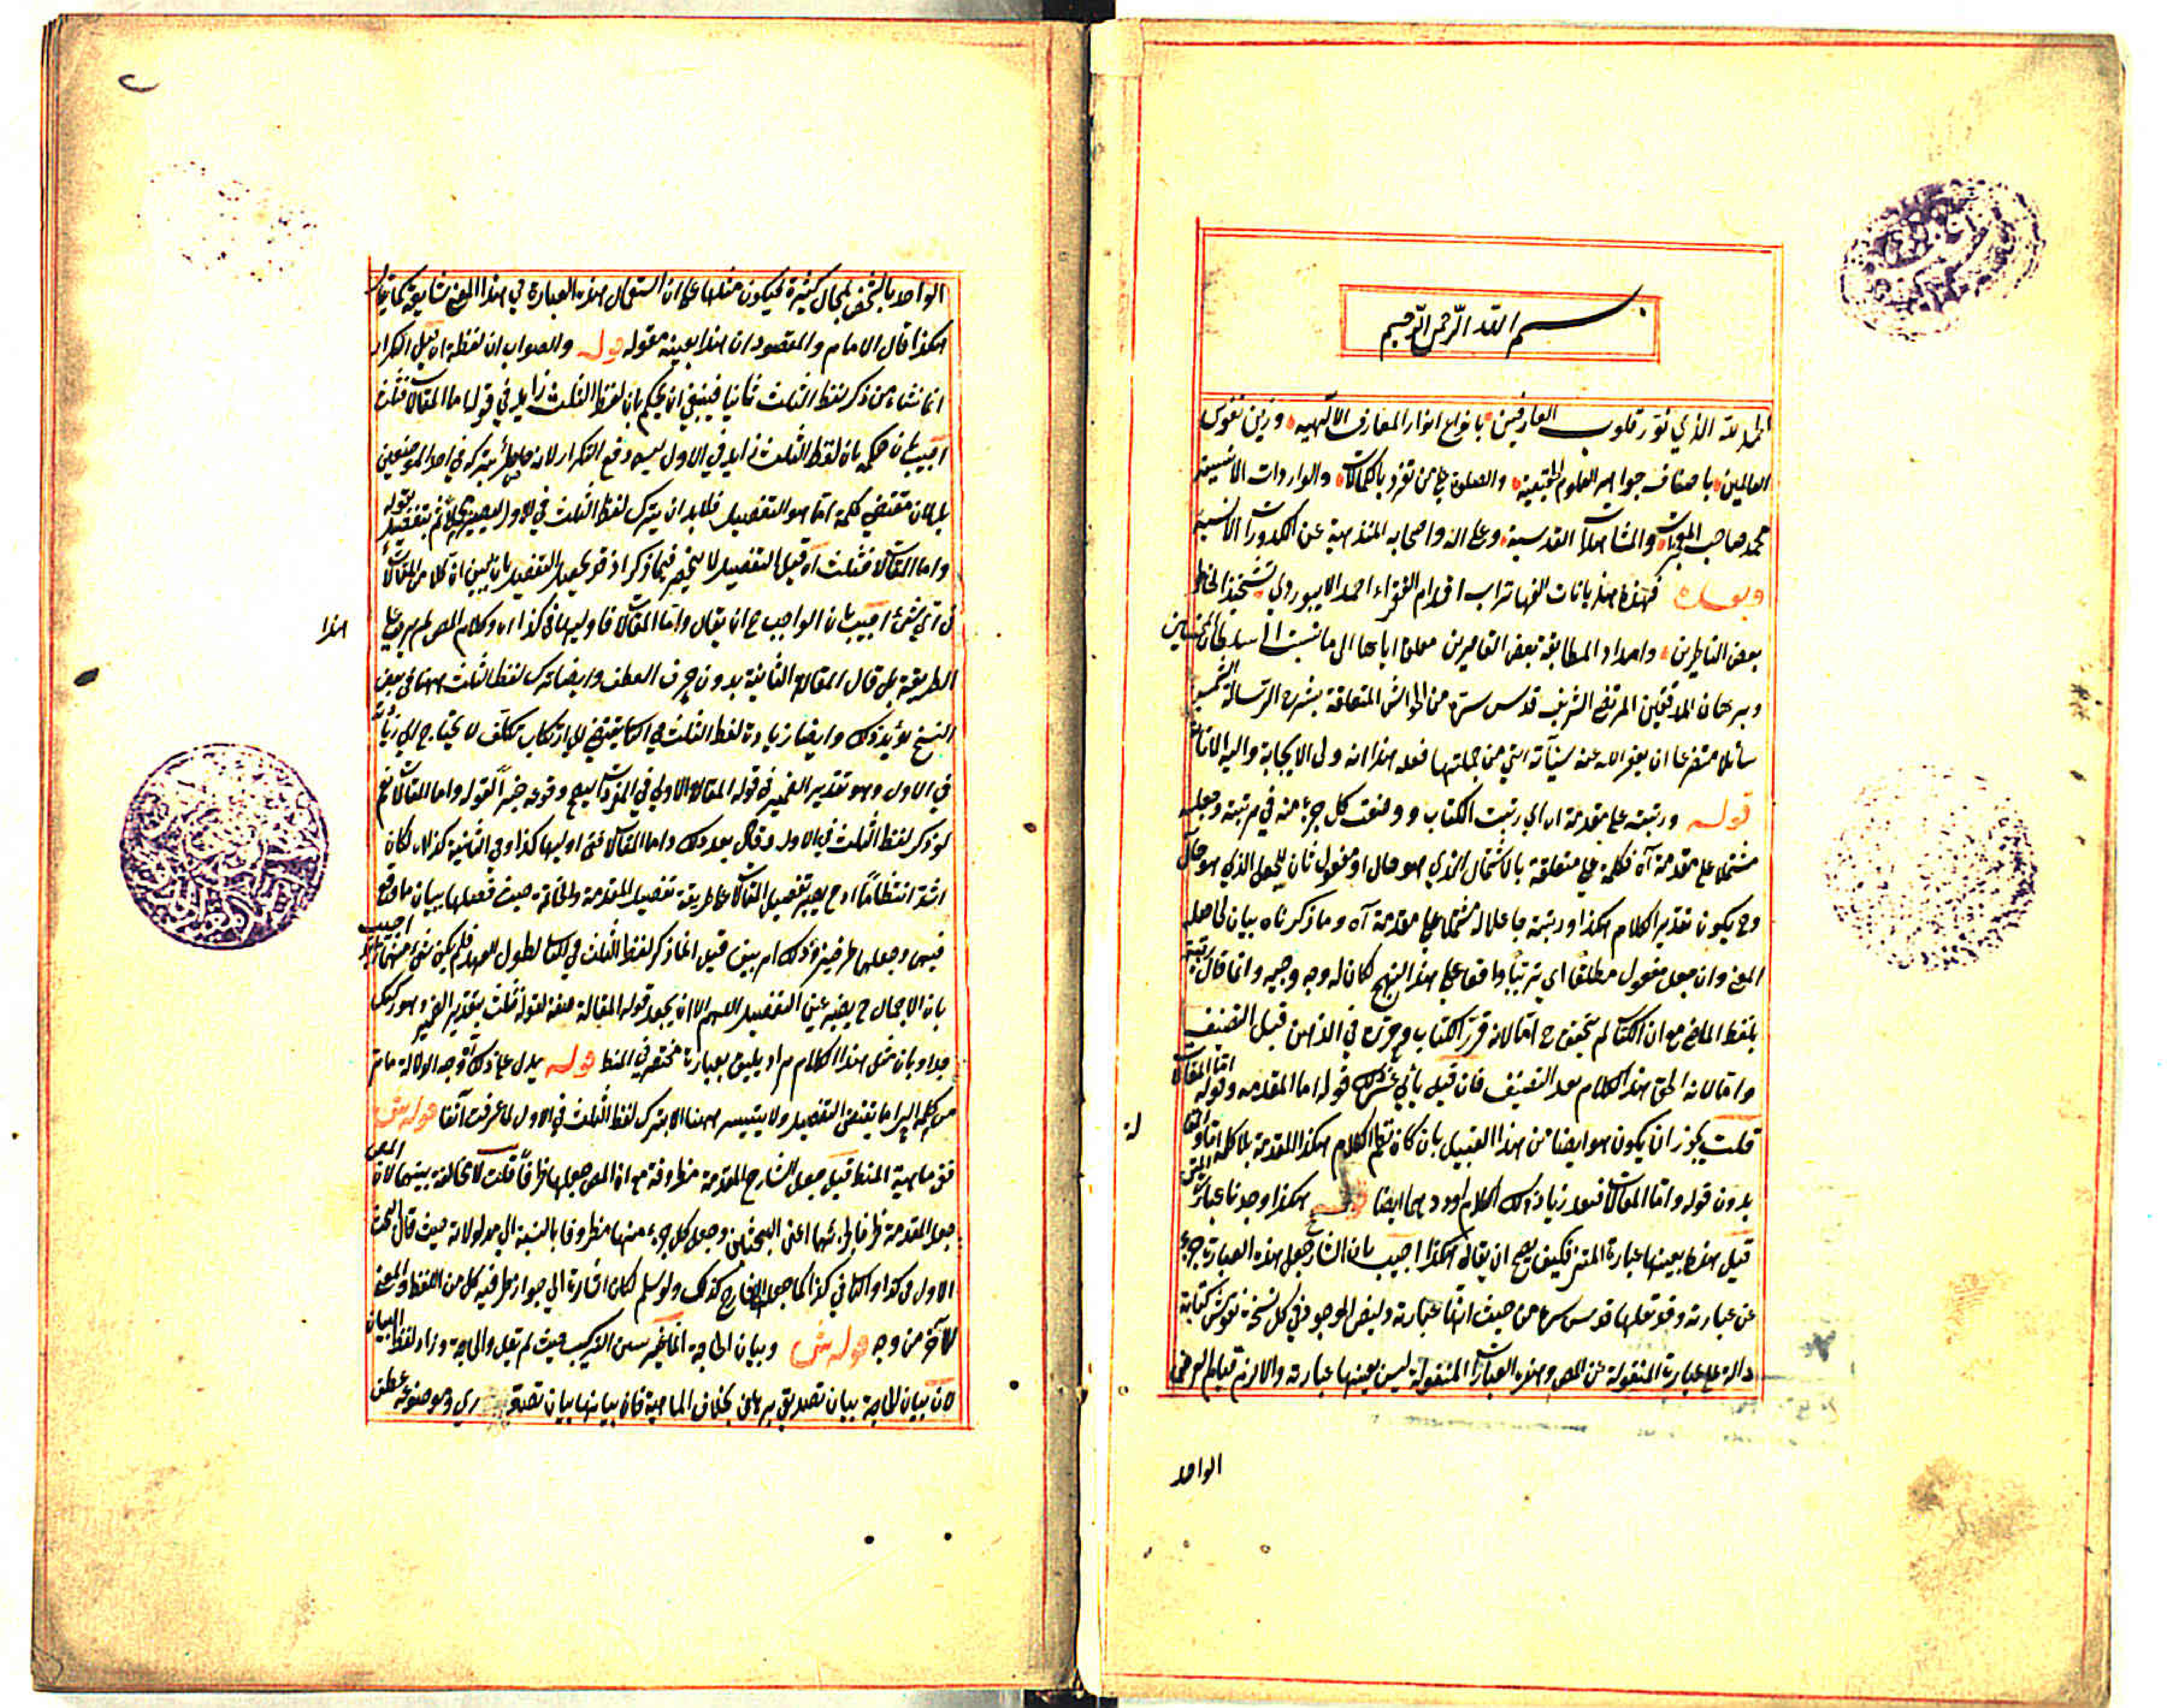 بسم الله الرحمن الرحيم
الحمد لله الذي نور قلوب العارفين بانواع انوار المعارف الالهيه وزين نفوس
العالمين باصناف جواهر العلوم الحقيقية والصلوة على من تفرد بالكمالات والواردات الانسية
محمد صاحب المعجزات والمشاهدات القدسية وعلى اله واصحابه المنزهة عن الكدورات الانسية
وبعد فهذه هذيانات الفها تراب اقدام الفقراء احمد الابيوردي تشحيذا لخاطر
بعض الناظرين وامداد المطابقة بعض القاصرين معلقا اياها الى ما نسب الى سلطان المحققين
وبرهان المدققين المرتضى الشريف قدس سره من الحواشي المتعلقة بشرح الرسالة الشمسية
سائلا متضرعا ان يعفو الله عنه سيآته التي من جملتها فعله هذا انه ولى الاجابة واليه الانابة
قوله ورتبته على مقدمة اه اي رتبت الكتاب ووضعت كل جزء منه في مرتبته وجعلته
مشتملا على مقدمة آه فكلمة على متعلقة بالاشتمال الذي هو حال او مفعول ثان للجعل الذي هو حال
وح يكون تقدير الكلام هكذا ورتبته جاعلا له مشتملا على مقدمة آه وما ذكرناه بيان لحاصل
المعنى وان جعل مفعول مطلقا اي ترتيبا واقعا على هذا النهج لكان له وجه وجيه وانما قال رتبته
بلفظ الماضي مع ان الكتاب لم يتحقق ح اما لانه قرر الكتاب وحرره في الذهن قبل التصنيف
واما لانه الحق هذا الكلام بعد التصنيف فان قيل يأبى عن ذلك قوله اما المقدمة وقوله اما المقالات
قلت يجوز ان يكون هو ايضا من هذا القبيل بان كان نظم الكلام هكذا المقدمة بلا كلمة اما
بدون قوله واما المقالات فبعد زيادة ذلك الكلام اوردهما ايضا قوله هكذا وجدنا عبارة المتن
قيل هذه بعينها عبارة المتن فكيف يصح ان يقال هكذا اجيب بان الشارح جعل هذه العبارة جزء
عن عبارته وقوعها قدس سره من حيث انها عبارته وليس الموجود في كل نسخة نقوش كتابة
دالة على عبارة المنقولة عن المص وهذه العبارات المنقولة ليس بعينها عبارته والا لزم قيام العرض
الواحد
الواحد بالشخص بمحال كثيرة فيكون مثلها على ان استعمال هذه العبارة في هذا المعنى شايع كما يقال
هكذا قال الامام والمقصود ان هذا بعينه مقوله قوله والصواب ان لفظة اه قيل التكرار
انما نشاء من ذكر لفظ الثلث ثانيا فينبغي ان يحكم بان لفظ الثلث زايد في قوله اما المقالات فثلث
اجيب بان حكمه بان لفظ الثلث زايد في الاول ليس دفع التكرار لانه حاصل بتركه في احد الموضعين
بل لان مقتضى كلمة اما هو التفصيل فلا بد ان يترك لفظ الثلث في الاول ليصير مجملا ثم تفصيل بقوله
واما المقالات فثلث آه قيل التفصيل لا ينحصر فيما ذكر اذ قد يحصل التفصيل بان يبين ان كلا من المقالات
في اي شيء اجيب بان الواجب ح ان يقال واما المقالات فاوليها في كذا اه وكلام المص لم يرد على هذا
الطريقة بل قال المقالة الثانية بدون حرف العطف وايضا ترك لفظ الثلث ههنا في بعض
النسخ يؤيد ذلك وايضا زيادة لفظ الثلث في الثاني يقتضي الى ارتكاب تكلف لا يحتاج الى زيادته
في الاول وهو تقدير الضمير في قوله المقالة الاولى في المفردات ليصح وقوعه خبرا لقوله واما المقالات نعم
لو ذكر لفظ الثلث في الاول وقال بعد ذلك واما المقالات ففي اوليها كذا وفي الثانية كذا لكان
اشد انتظاما اذ ح يصير تفصيل المقالات على طريقة تفصيل المقدمة والخاتمة حيث فعلها ببيان ما وقع
فيهما وجعلها ظرفية وذلك امر بين قيل انما ذكر لفظ الثلث في الثاني لطول العهد فلم يكن اجيب
بان الاجمال ح يصير عين التفصيل اللهم الا ان يجعل قوله المقالة صفة لقوله فثلث بتقدير الضمير وهو ركيك
جدا وبان مثل هذا الكلام مراد يليق بعبارة مختصر في المنطق قوله يدل على ذلك آه وجه الدلالة ما مر
من كلمة اما يقتضي التفصيل ولا يتيسر ههنا الا بترك لفظ الثلث في الاول لما عرفت آنفا قوله ش
ففي ماهية المنطق قيل جعل الشارح المقدمة مظروفة مع ان المص جعلها ظرفا قلت لا مخالفة بينهما لان المص
جعل المقدمة ظرفا لجزئيها اعنى البحثين وجعل كل جزء منها مظروفا بالنسبة الى مدلولاته حيث قال البحث
الاول في كذا والثاني في كذا كما جعل الشارح كذلك ولو سلم لكان اشارة الى جواز ظرفية كل من اللفظ والمعنى
للآخر من وجه قوله ش وبيان الحاجة انما غير سنن التركيب حيث لم يقل والحاجة وزاد لفظ البيان
لان بيان الحاجة بيان تصديق برهاني بخلاف الماهية فان بيانها بيان تصوري وموضوعه عطف